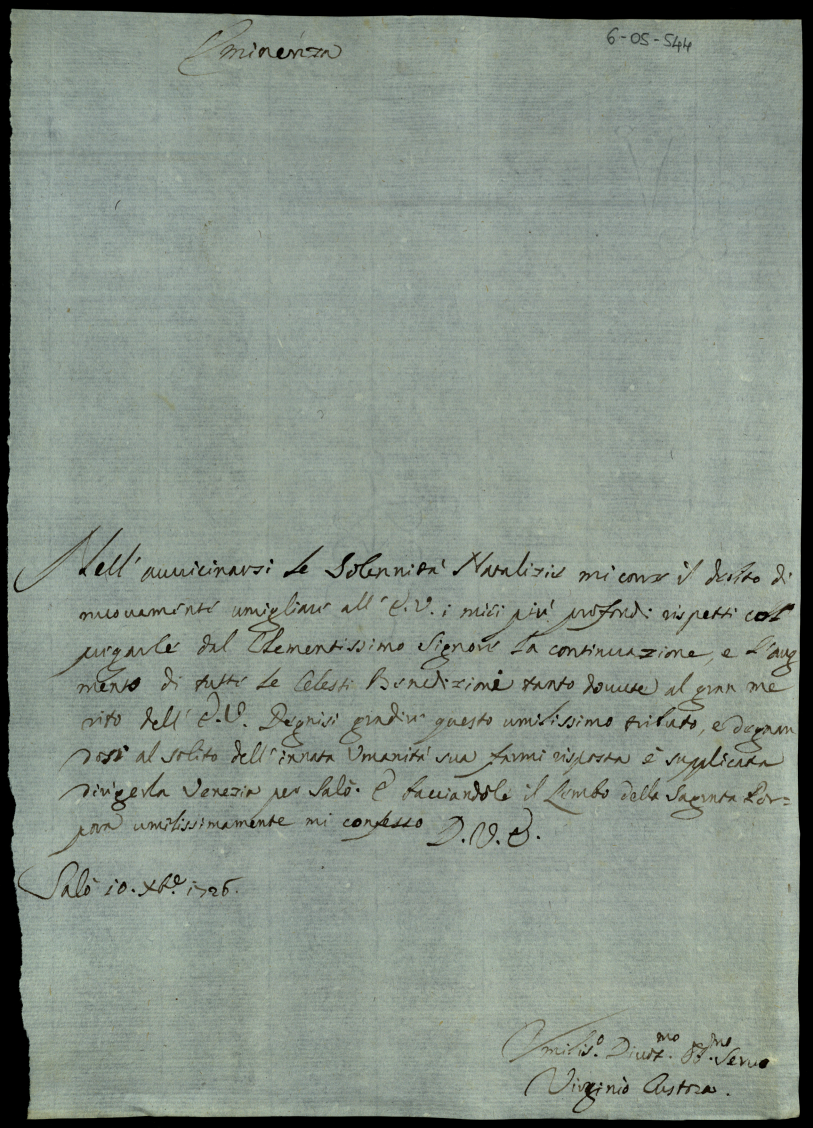 Eminenza
6-05-544
Nell' auuicinarsi le Solennità Natalizie mi corre il debito di
nuouamente umigliare all' E.V. i miei più profondi rispetti col
pregarle dal Clementissimo Signore la continuazione, e l'aug
mento di tutte le Celesti Benedizioni tanto douute al gran me
rito dell' E.V. Degnisi gradire questo umilissimo tributo, e degnan
dosi al solito dell' innata Umanità sua farmi risposta è supplicata
dirigerla Venezia per Salò. E bacciandole il Lembo della Sagrata Por=
pora umilissimamente mi confesso
D. V. E.
Salò 10. Xbre. 1726.
Umilis.o Diuot.mo Servo
Virginio